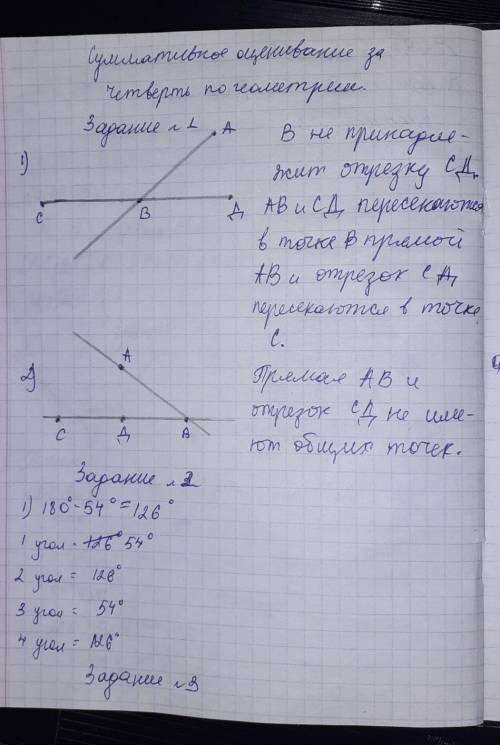 Суммативное оценивание за
четверть по геометрии.
Задание №1
1)
А
С
В
Д
В не принадле-
жит отрезку СД,
АВ и СД пересекаются
в точке В прямой
АВ и отрезок СД
пересекаются в точке
С.
2)
А
С
Д
В
Прямая АВ и
отрезок СД не име-
ют общих точек.
Задание №2
1) 180°-54°=126°
1 угол = 126° 54°
2 угол = 126°
3 угол = 54°
4 угол = 126°
Задание №3